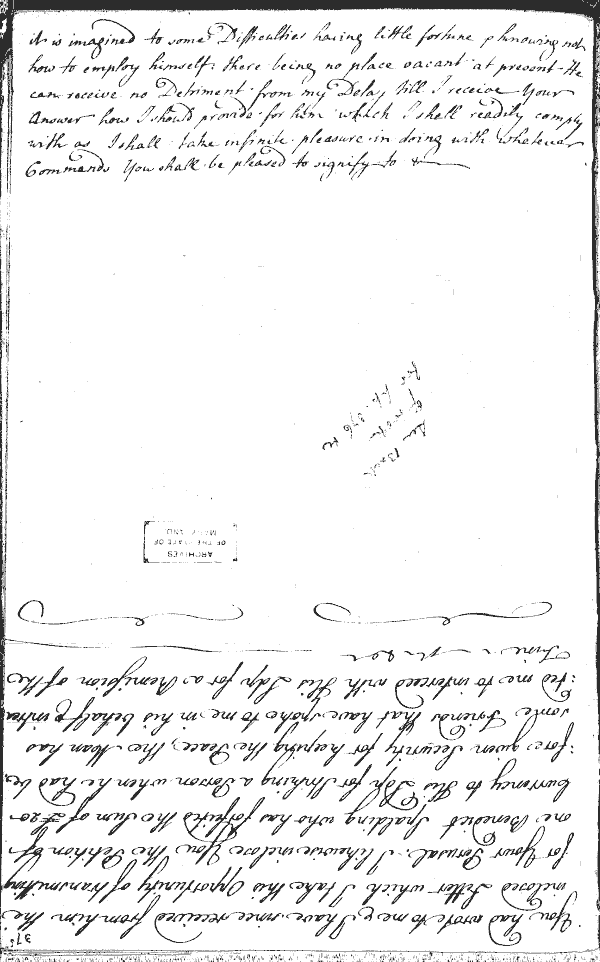 it is imagined to some Difficulties having little fortune & knowing not
how to employ himself: there being no place vacant at present. He
can receive no Detriment from my Delay till I receive Your
Answer how I should provide for him which I shall readily comply
with as I shall take infinite pleasure in doing with whatever
Commands You shall be pleased to signify to &
See Back
of Book
for pp. 376
ARCHIVES
OF THE STATE OF
MARYLAND
376
You had wrote to me & I have since received from him the
inclosed Letter which I take this Opportunity of transmitting
for Your Perusal. I likewise inclose You the Petition of
one Benedict Spalding who has forfeited the Sum of £20
Currency to His Ldp for Striking a Person when he had be
:fore given Security for keeping the Peace, the Man has
some Friends that have spoke to me in his behalf & intrea
:ted me to interceed with His Ldp for a Remission of the
Fine